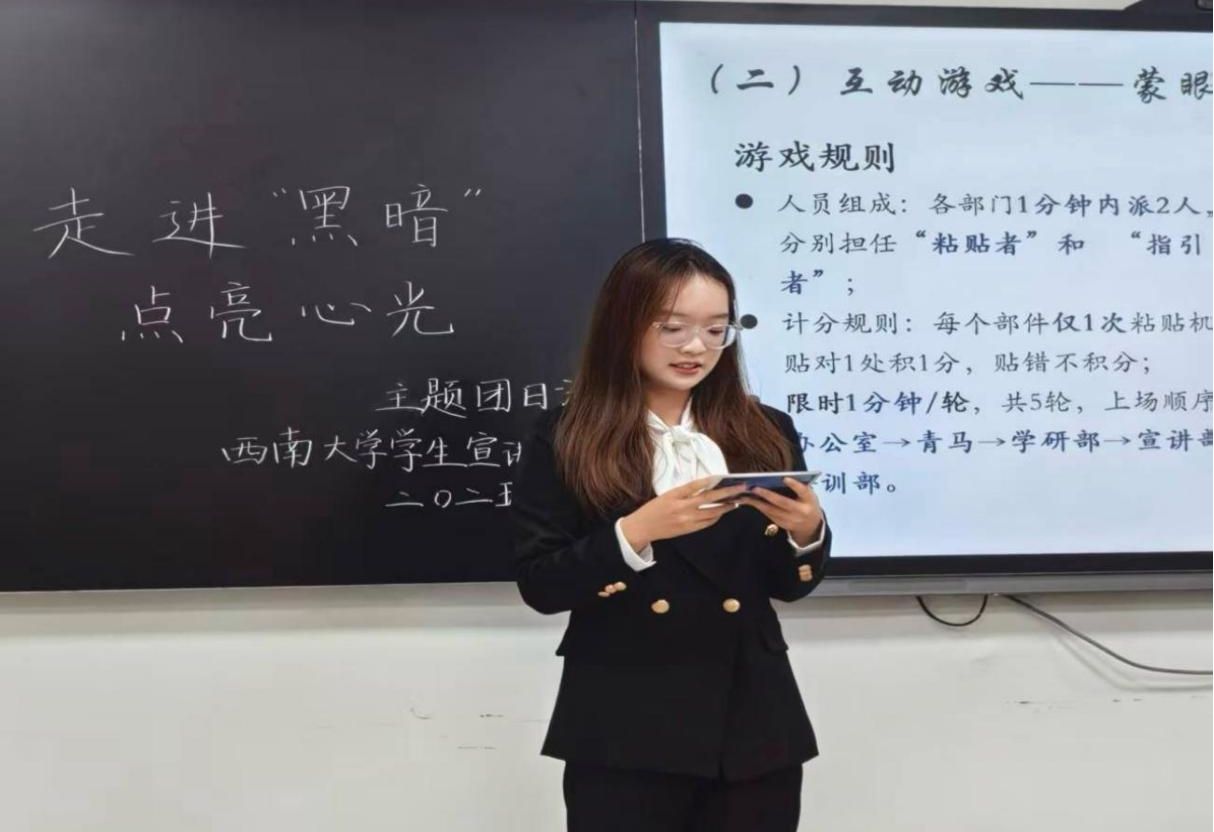 走进“黑暗”
点亮心光
主题团日
西南大学学生宣讲
二〇二五
（二）互动游戏——蒙眼
游戏规则
● 人员组成：各部门1分钟内派2人，
分别担任“粘贴者”和 “指引
者”；
● 计分规则：每个部件仅1次粘贴机
贴对1处积1分，贴错不积分；
限时1分钟/轮，共5轮，上场顺序
办公室→青马→学研部→宣讲部
训部。